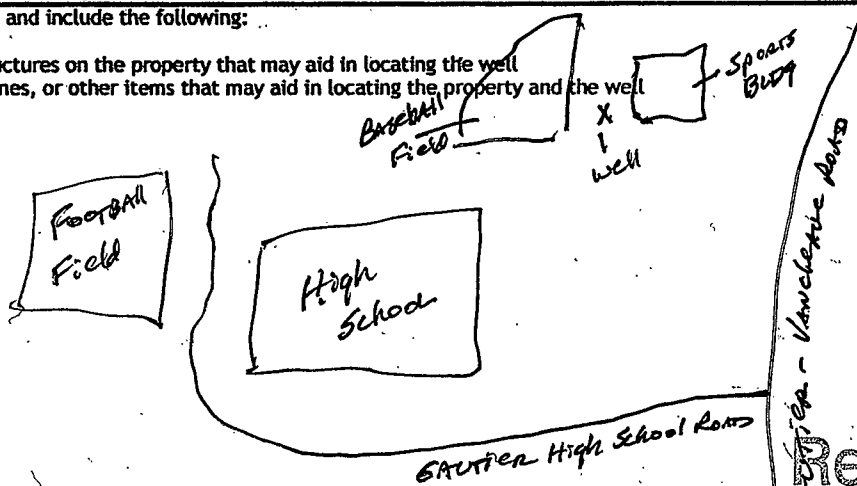 and include the following:
ctures on the property that may aid in locating the well
nes, or other items that may aid in locating the property and the well
Sports
Bldg
Baseball
Field
X
well
Football
Field
High
School
Gautier High School Road
Vancleave Road
Re